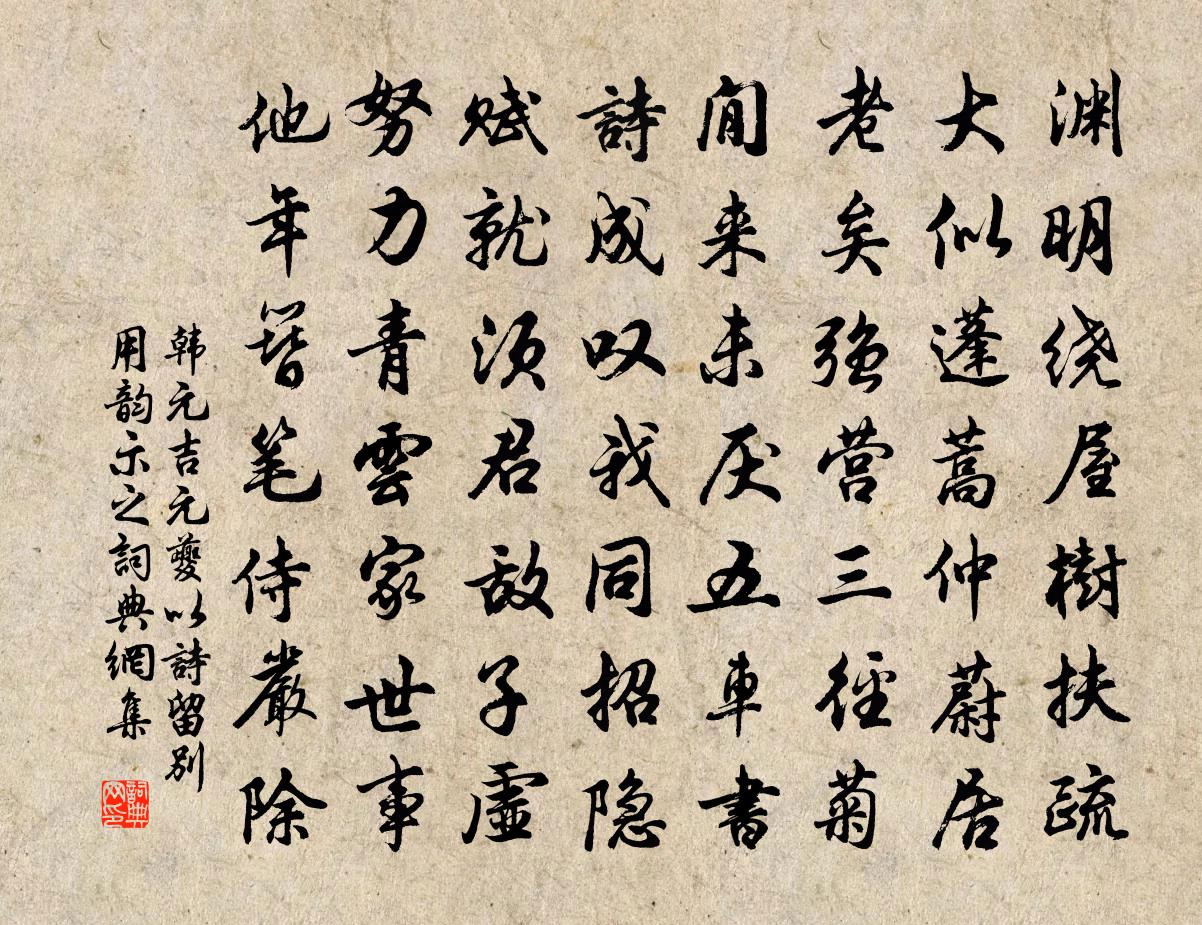 渊明绕屋樹扶疏
大似蓬蒿仲蔚居
老矣强营三径菊
闲来未厌五車書
詩成叹我同招隐
賦就须君敌子虚
努力青雲家世事
他年簪笔侍嚴除
韩元吉元夔以詩留别
用韵示之詞典網集
詞典网印